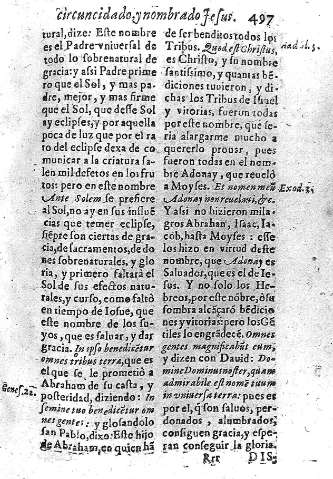 circuncidado, y nombrado Jesus. 497
tural, dize: Este nombre es
el Padre vniuersal de
todo lo sobrenatural de
gracia: y asi Padre prime
ro que el Sol, y mas pa-
dre, mejor, y mas firme
que el Sol, que desse Sol
ay eclipses, y por aquella
poca de luz que por el ra
ro del eclipse dexa de co-
municar a la criatura sa-
len mil defetos en los fru
tos: pero en este nombre
Ante Solem se prefiere
al Sol, no ay en sus influē
cias que temer eclipse,
siēpre son ciertas de gra-
cia, de sacramentos, de do
nes sobrenaturales, y glo
ria, y primero faltará el
Sol de sus efectos natura
les, y curso, como faltò
en tiempo de Iosue, que
este nombre de los su-
yos, que es saluar, y dar
gracia. In ipso benedicētur
omnes tribus terra, que es
el que se le prometiò a
Abraham de su casta, y
posteridad, diziendo: In
semine tuo benedicētur om
nes gentes: y glosandolo
san Pablo, dixo: Este hijo
de Abraham, en quien hā
Genes. 22.
de ser benditos todos los
Tribos. Quod est Christus,
es Christo, y su nombre
santissimo, y quantas bē-
diciones tuuieron, y di-
chas los Tribus de Israel
y vitorias, fueron todas
por este nombre, que se-
ria alargarme mucho a
quererlo prouar, pues
fueron todas en el nom-
bre Adonay, que reuelò
a Moyses. Et nomen meū
Adonay non reuelaui, &c.
Y asi no hizieron mila-
gros Abrahan, Isaac, Ia-
cob, hasta Moyses: esse
los hizo en virtud deste
nombre, que Adonay es
Saluador, que es el de Ie-
sus. Y no solo los He-
breos, por este nōbre, ò su
sombra alcāçarō bēdicio
nes y vitorias: pero los Gē
tiles lo engrādecē. Omnes
gentes magnificabūt eum,
y dizen con Dauid: Do-
mine Dominus noster, quam
admirabile est nomē tuum
in vniuersa terra: pues es
por el, q̄ son saluos, per-
donados, alumbrados,
consiguen gracia, y espe-
ran conseguir la gloria.
Rrr DIS-
Exod. 3.